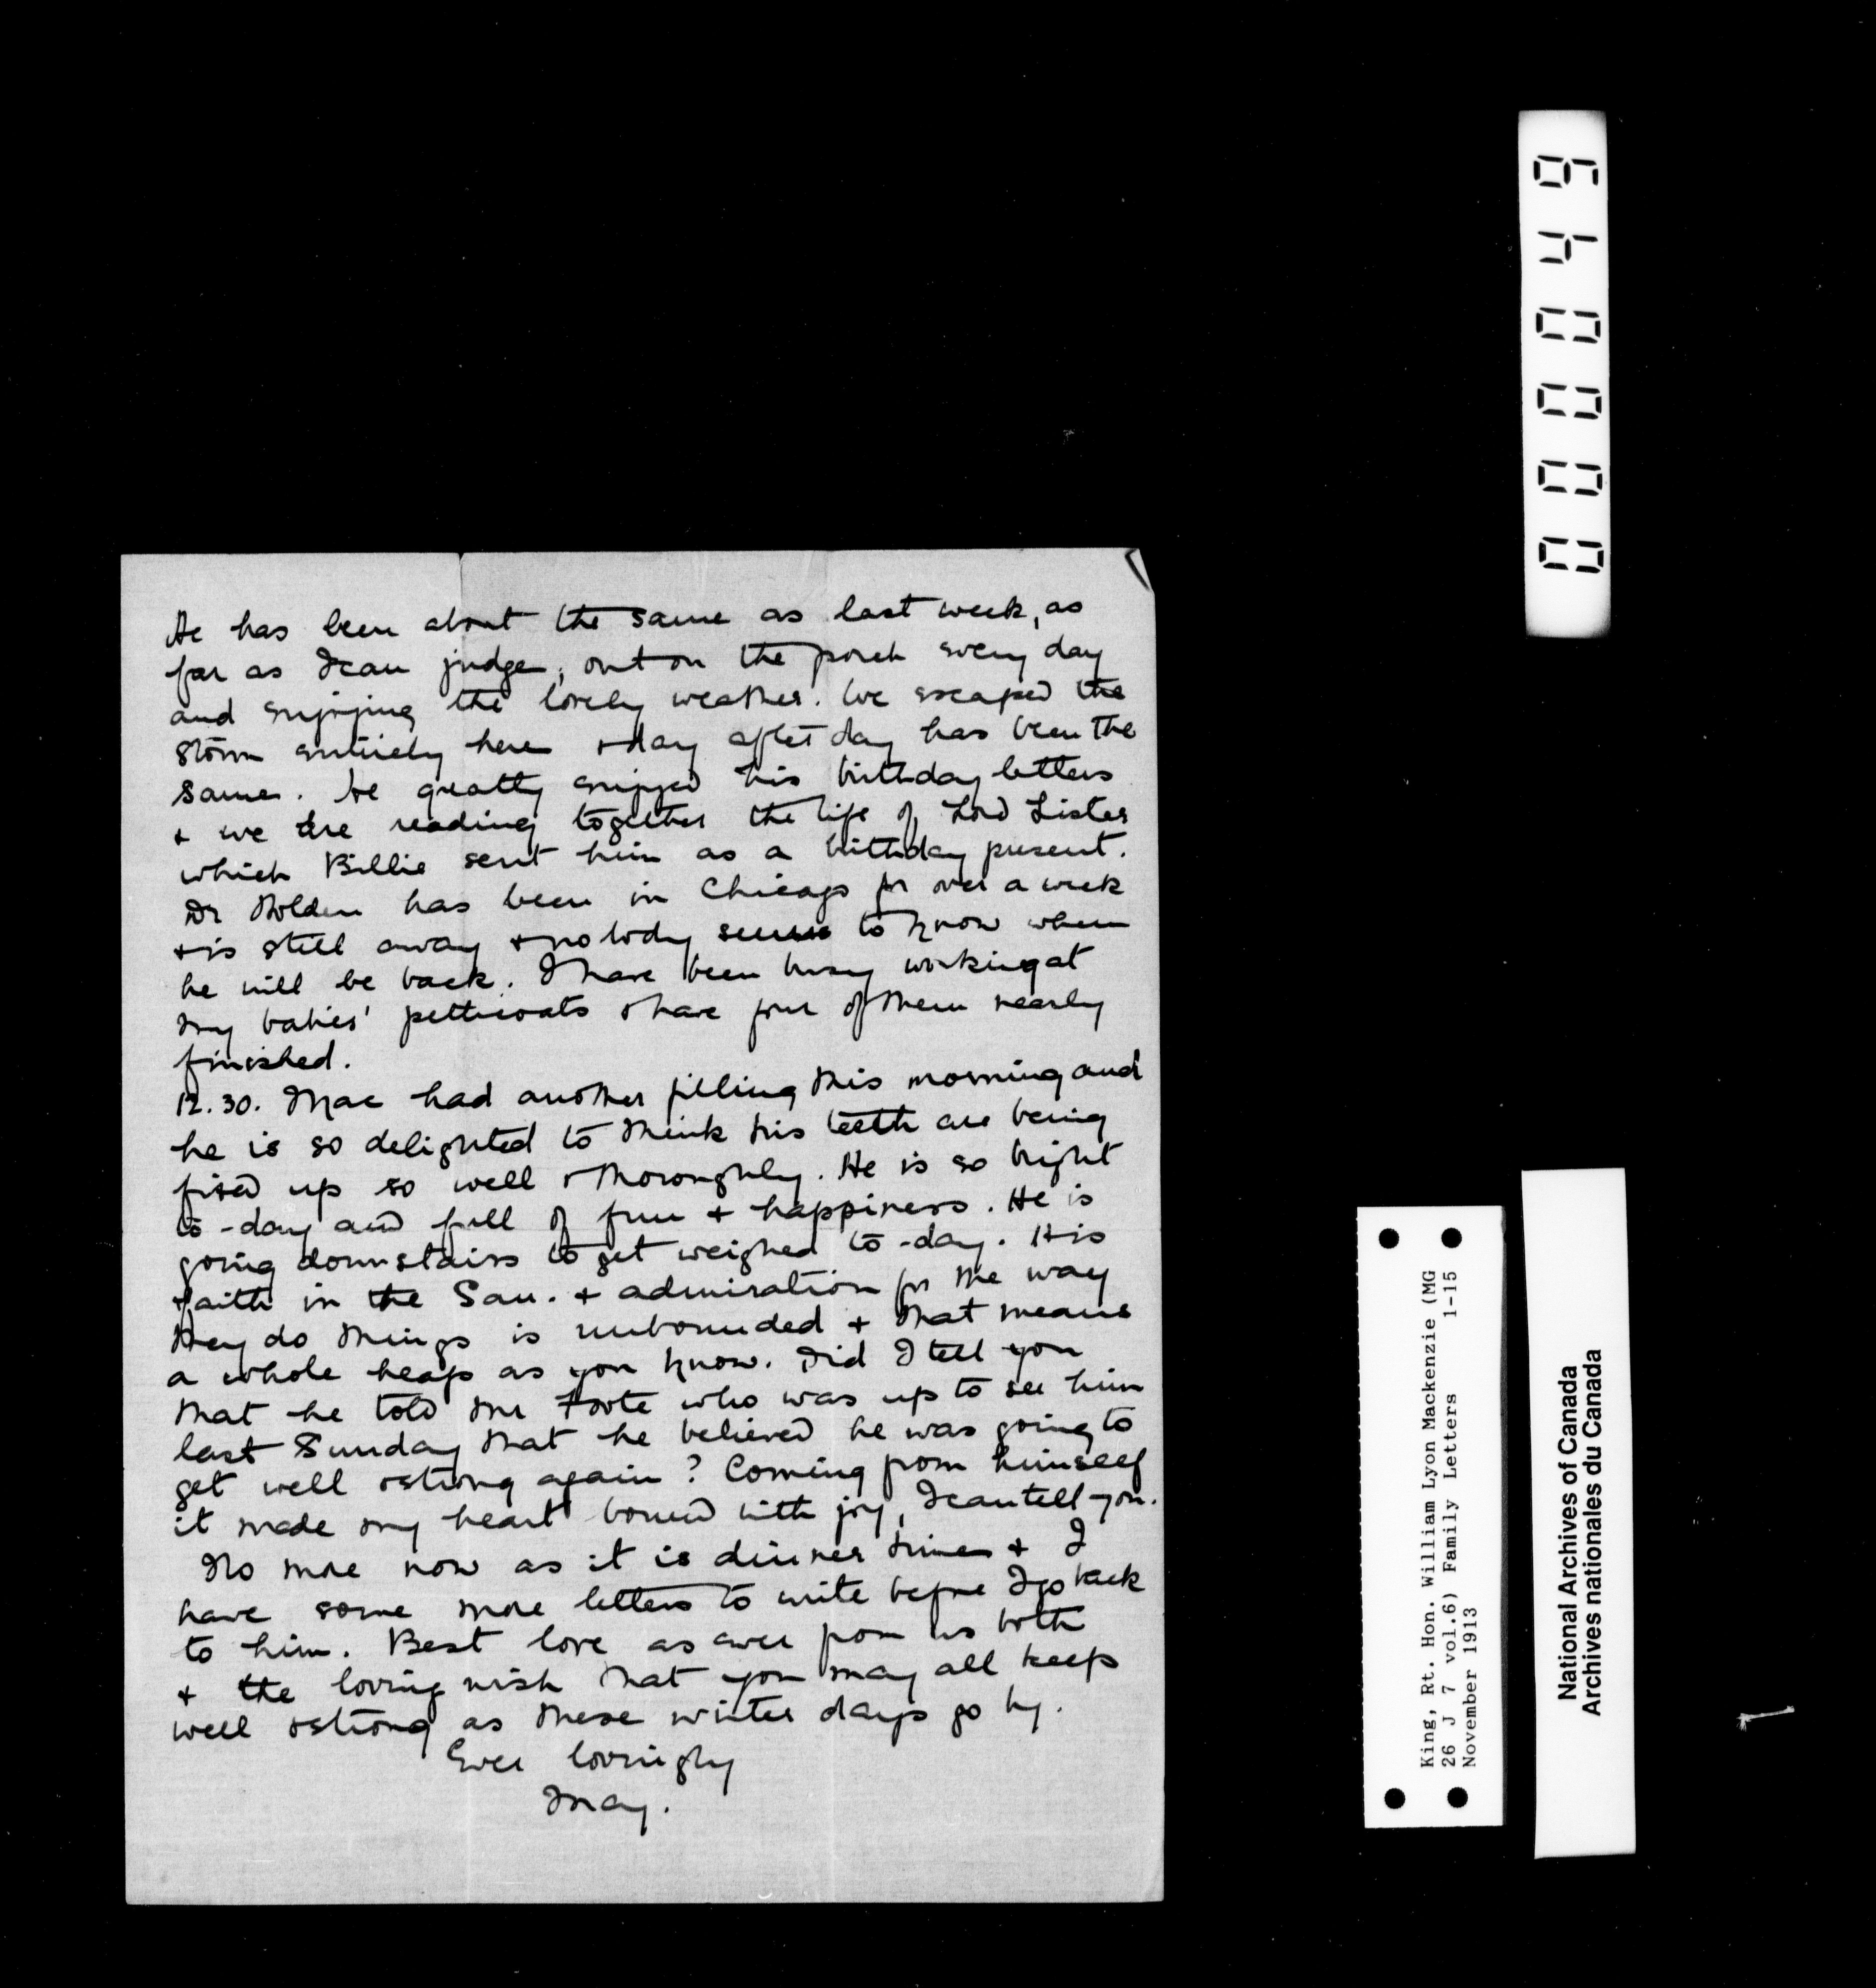 He has been about the same as last week, as
far as I can judge, out on the porch every day
and enjoying the lovely weather. We escaped the
storm entirely here & day after day has been the
same. He greatly enjoyed his birthday letters
& we are reading together the life of Lord Lister
which Billie sent him as a birthday present.
Dr Holden has been in Chicago for over a week
& is still away & nobody seems to know when
he will be back. I have been busy working at
my babies' petticoats & have four of them nearly
finished.
12.30. Mac had another filling this morning and
he is so delighted to think his teeth are being
fixed up so well & thoroughly. He is so bright
to-day and full of fun & happiness. He is
going downstairs to get weighed to-day. His
faith in the San. & admiration for the way
they do things is unbounded & that means
a whole heap as you know. Did I tell you
that he told Mr Foote who was up to see him
last Sunday that he believed he was going to
get well & strong again? Coming from himself
it made my heart bound with joy, I can tell you.
No more now as it is dinner time & I
have some more letters to write before I go back
to him. Best love as ever from us both
& the loving wish that you may all keep
well & strong as these winter days go by.
Ever lovingly
May.
000049
King, Rt. Hon. William Lyon Mackenzie (MG
26 J 7 vol.6) Family Letters 1-15
November 1913
National Archives of Canada
Archives nationales du Canada